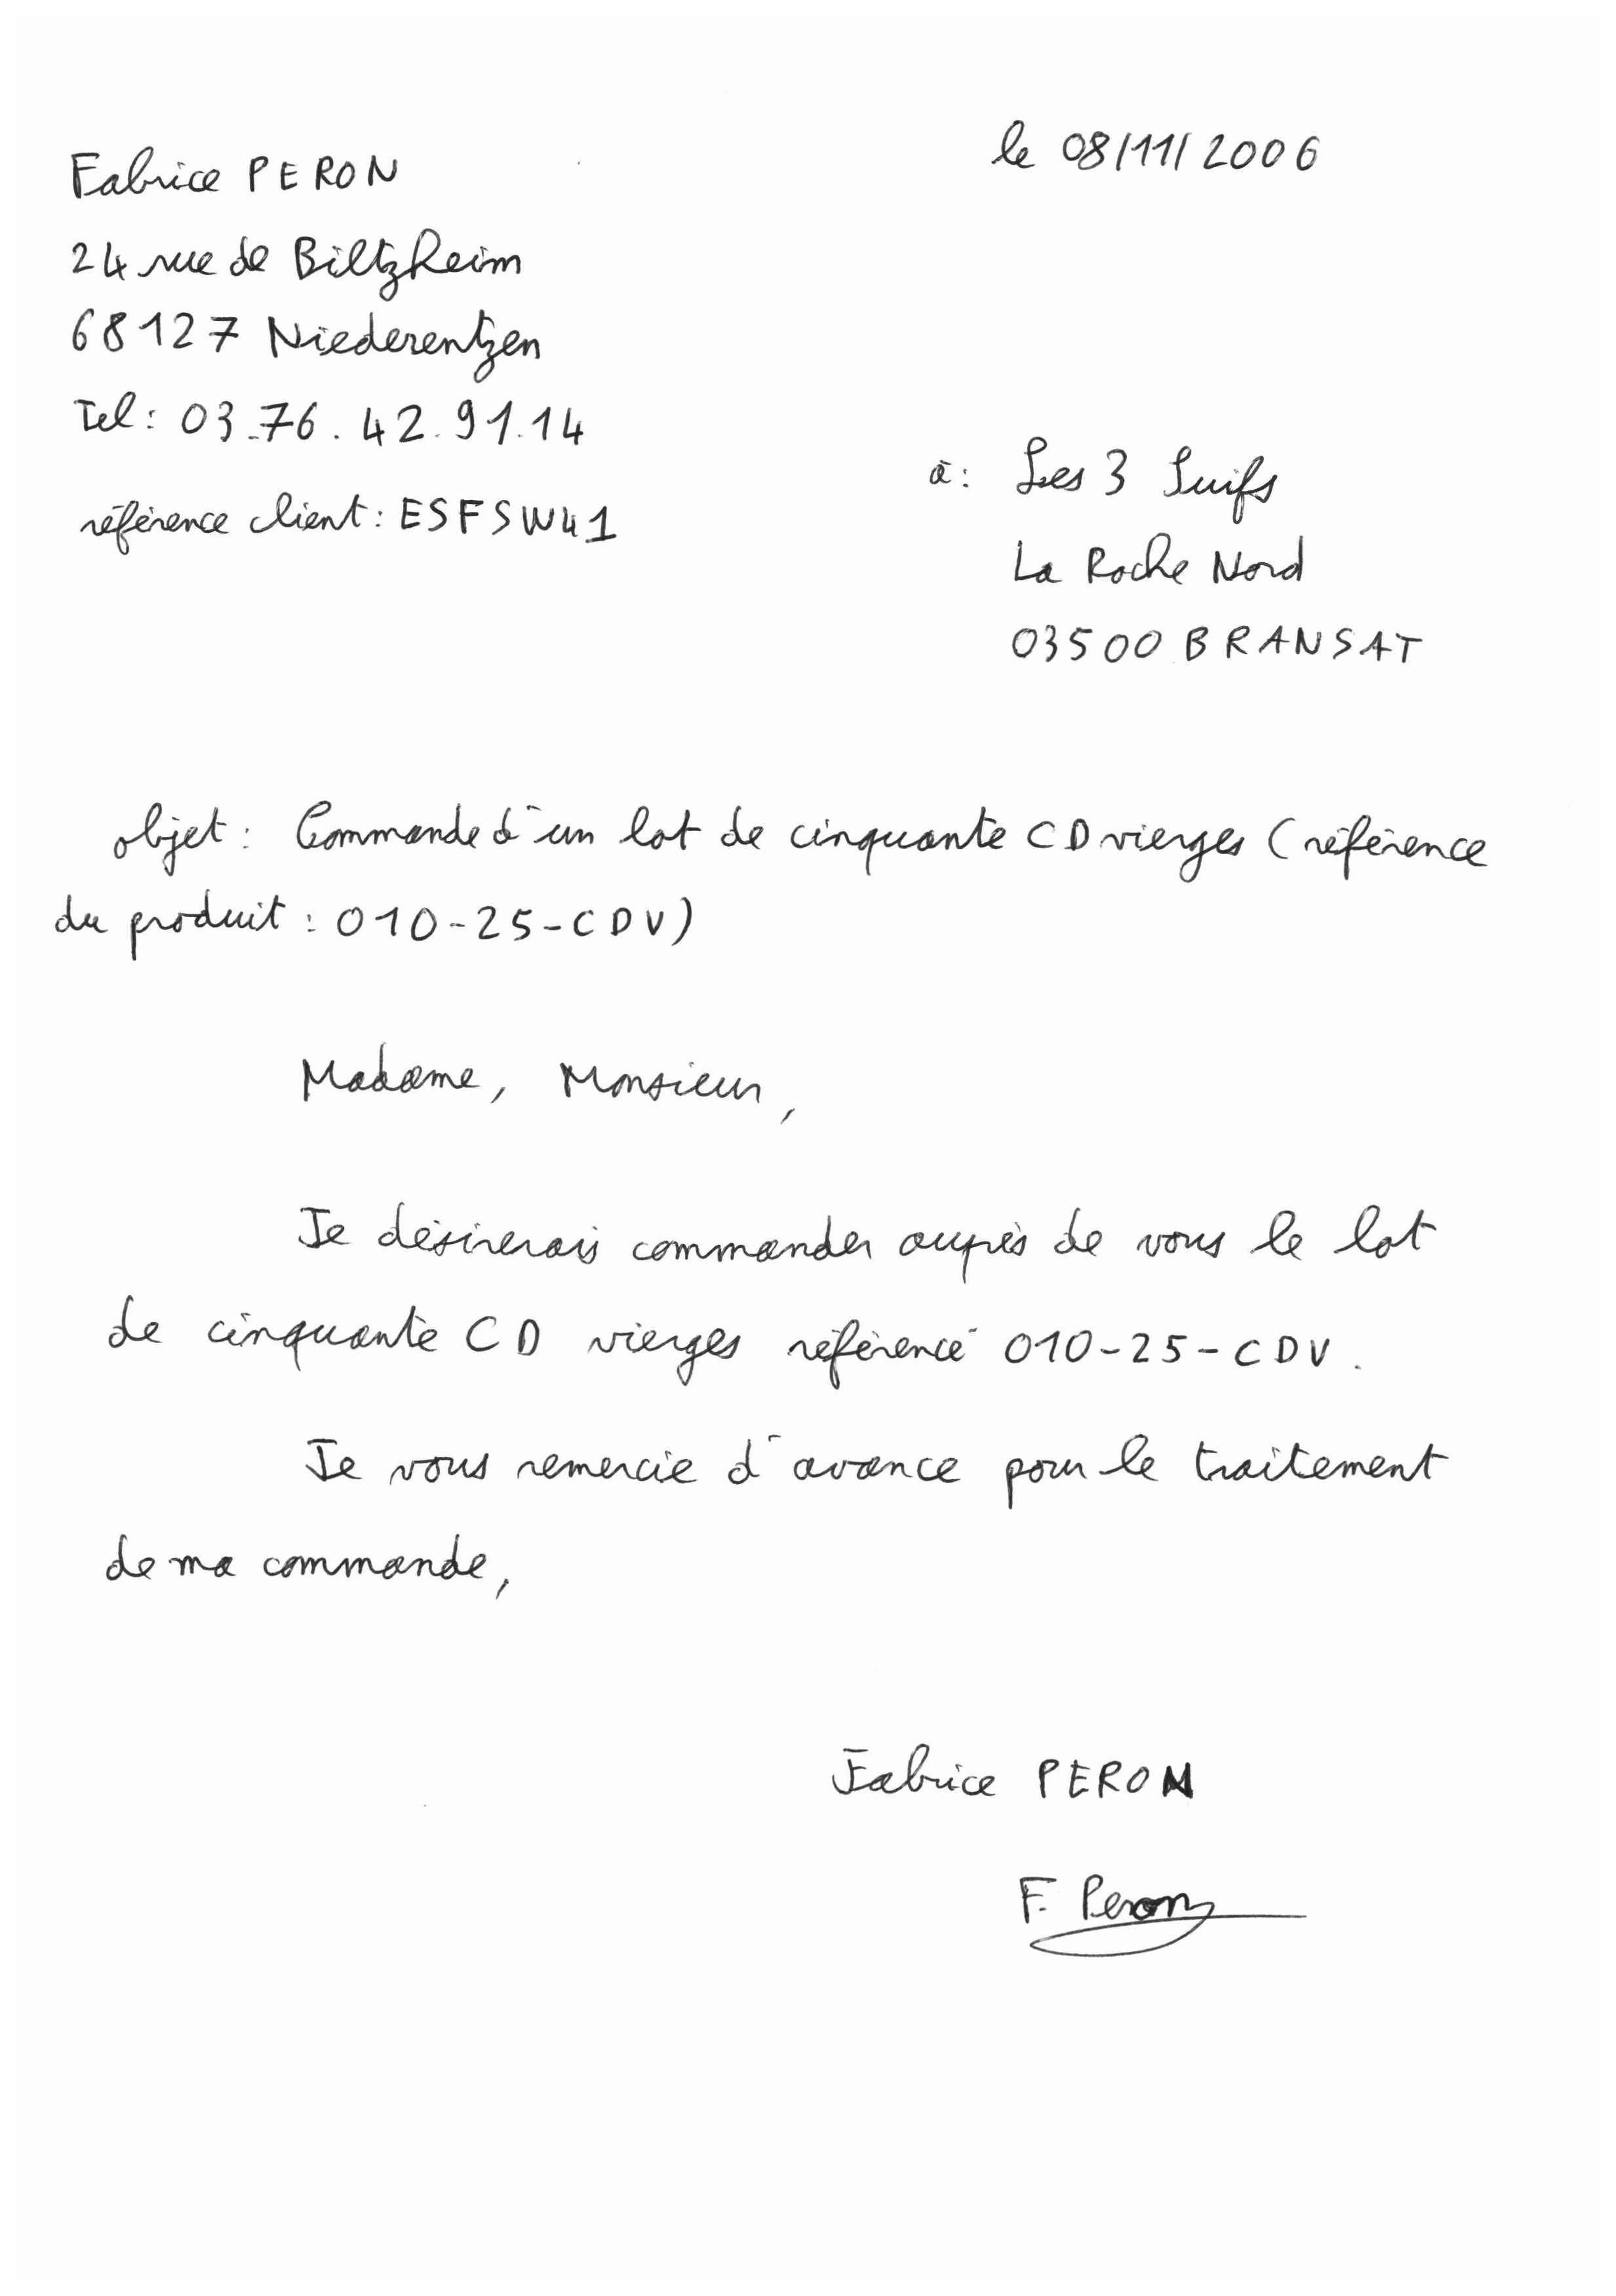 Fabrice PERON
le 08/11/2006
24 rue de Biltzheim
68127 Niederentzen
Tel : 03.76.42.91.14
référence client : ESFSW41
à : Les 3 Suifs
La Roche Nord
03500 BRANSAT
objet : Commande d'un lot de cinquante CD vierges (référence
du produit : 010-25-CDV)
Madame, Monsieur,
Je désirerais commander auprès de vous le lot
de cinquante CD vierges référence 010-25-CDV.
Je vous remercie d'avance pour le traitement
de ma commande,
Fabrice PERON
F. Peron